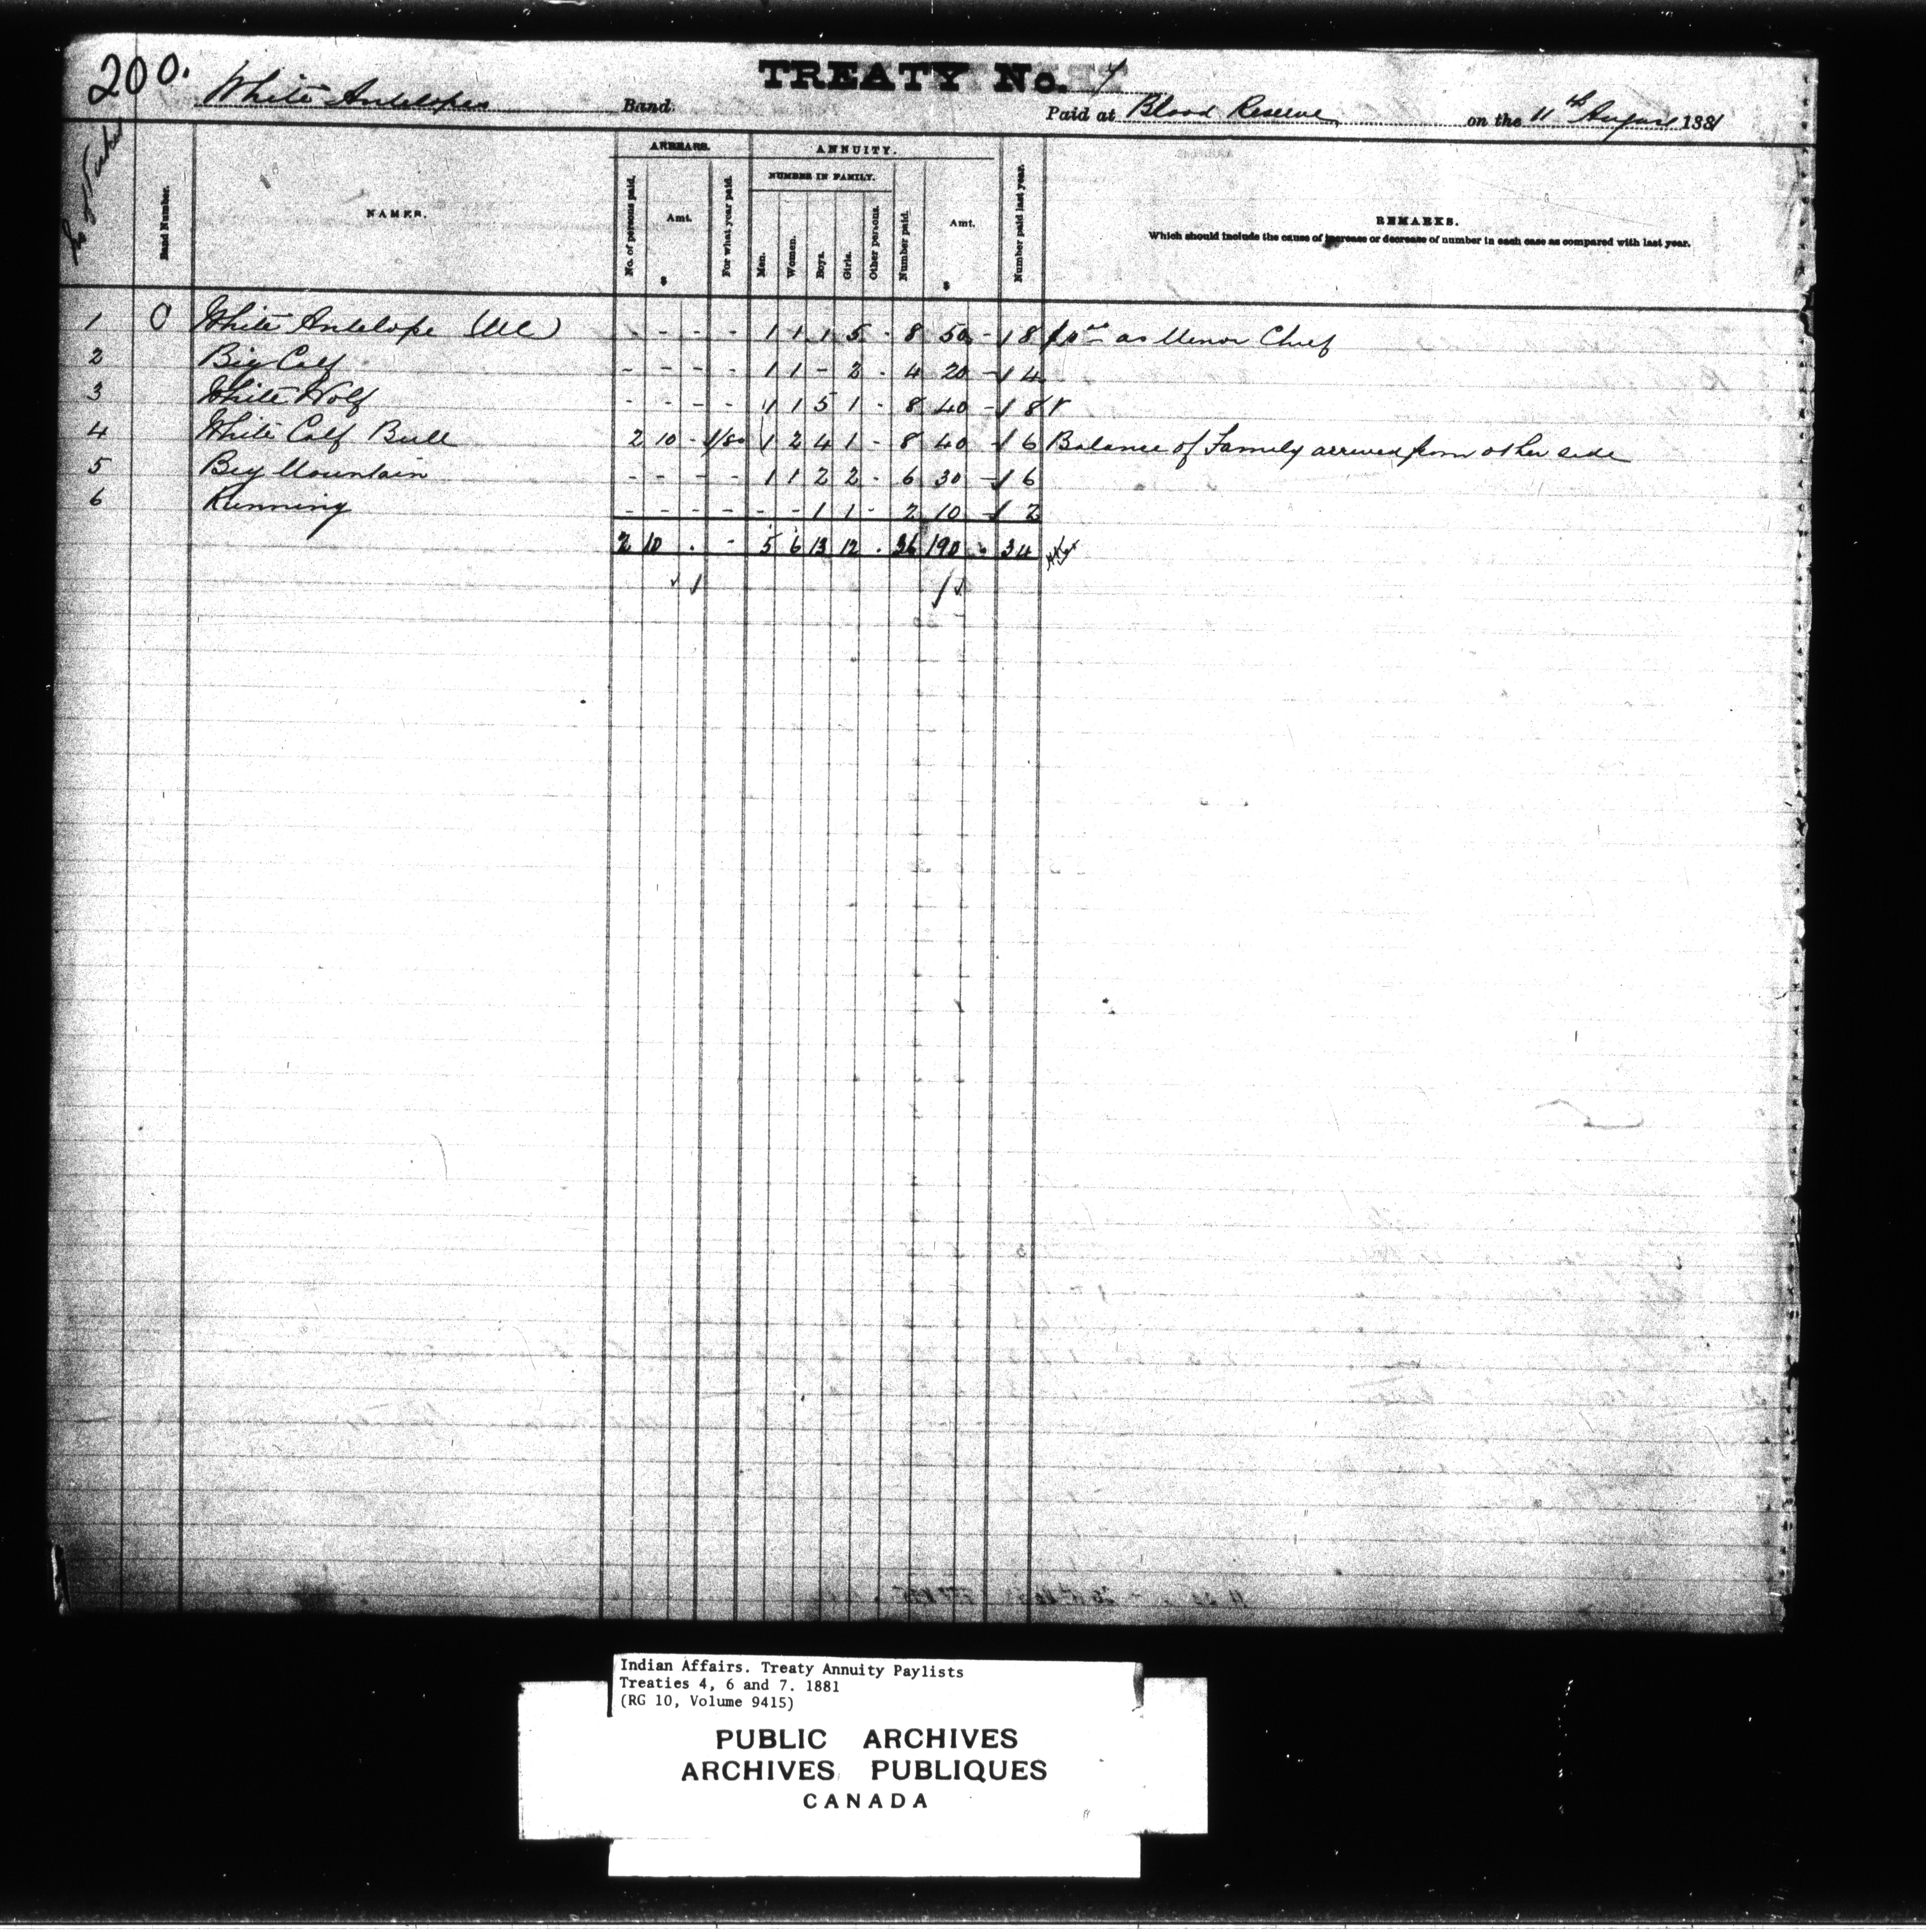 200.
TREATY No. 7
White Antelopes Band.
Paid at Blood Reserve, on the 11th August 1881
No of Ticket
Band Number.
NAMES.
ARREARS.
No. of persons paid.
Amt.
$
For what year paid.
ANNUITY.
NUMBER IN FAMILY.
Men.
Women.
Boys.
Girls.
Other persons.
Number paid.
Amt.
$
Number paid last year.
REMARKS.
Which should include the cause of increase or decrease of number in each case as compared with last year.
1 0 White Antelope (MC) - - - - 1 1 1 5 - 8 50 - 8 as Minor Chief
2 Big Calf - - - - 1 1 - 2 - 4 20 - 4
3 White Wolf - - - - 1 1 5 1 - 8 40 - 8
4 White Calf Bull 2 10 - 1/80 1 2 4 1 - 8 40 - 6 Balance of Family arrived from other side
5 Big Mountain - - - - 1 1 2 2 - 6 30 - 6
6 Running - - - - - - 1 1 - 2 10 - 2
2 10 . - 5 6 13 12 . 36 190 . 34
Indian Affairs. Treaty Annuity Paylists
Treaties 4, 6 and 7. 1881
(RG 10, Volume 9415)
PUBLIC ARCHIVES
ARCHIVES PUBLIQUES
CANADA